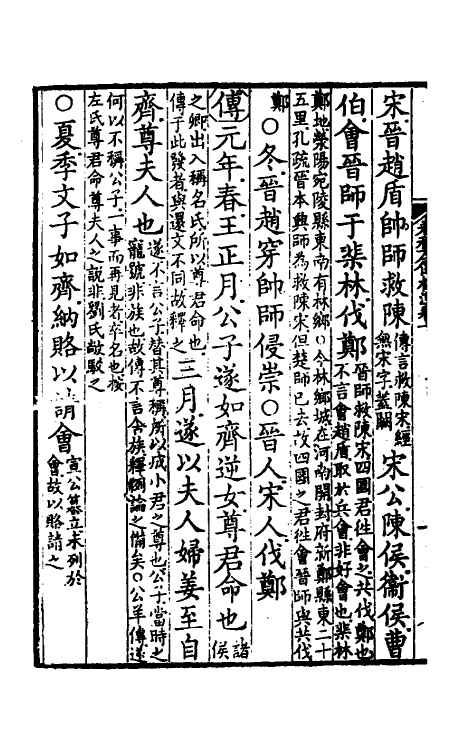 宋晉趙盾帥師救陳傳言救陳宋經無宋字蓋闕宋公陳侯衞侯曹
伯會晉師于棐林伐鄭晉師救陳宋四國君徃會之共伐鄭也不言會趙盾取於兵會非好會也棐林
鄭地滎陽宛陵縣東南有林鄉○今林鄉城在河南開封府新鄭縣東二十五里孔疏晉本興師為救陳宋但楚師已去故四國之君徃會晉師與共伐
鄭○冬晉趙穿帥師侵崇○晉人宋人伐鄭
傳元年春王正月公子遂如齊逆女尊君命也諸侯
之卿出入稱名氏所以尊君命也傳于此發者與還文不同故釋之三月遂以夫人婦姜至自
齊尊夫人也遂不言公子替其尊稱所以成小君之尊也公子當時之寵號非族也故傳不言舍族釋例論之備矣○公羊傳遂
何以不稱公子一事而再見者卒名也按左氏尊君命尊夫人之說非劉氏敞駁之
○夏季文子如齊納賂以請會宣公簒立未列於會故以賂請之